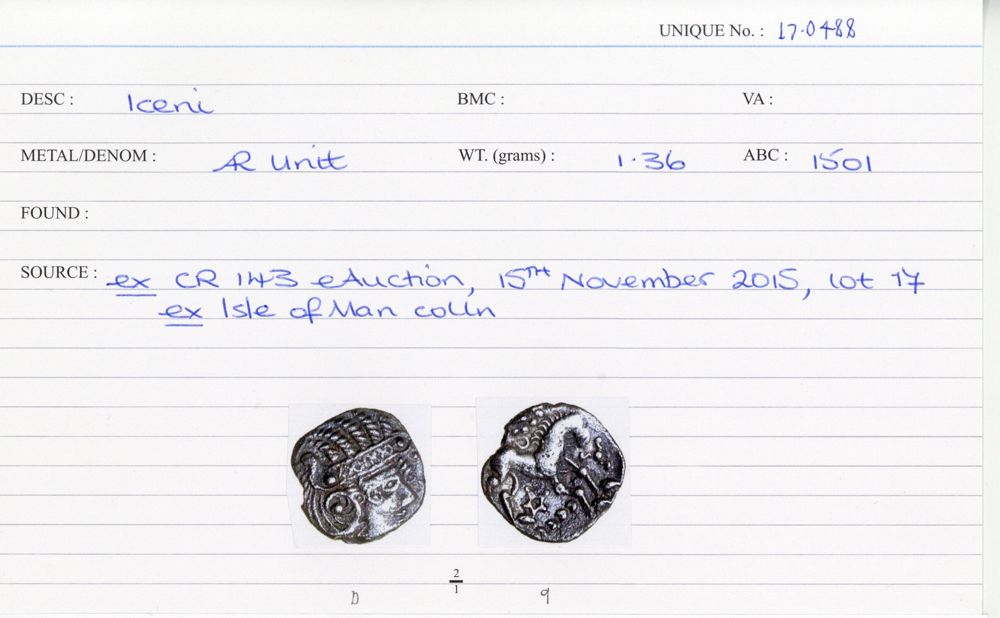 UNIQUE No. : 17.0488
DESC : Iceni BMC : VA :
METAL/DENOM : AR Unit WT. (grams) : 1.36 ABC : 1501
FOUND :
SOURCE : ex CR 143 eAuction, 15TH November 2015, lot 17
ex Isle of Man colln
2
1